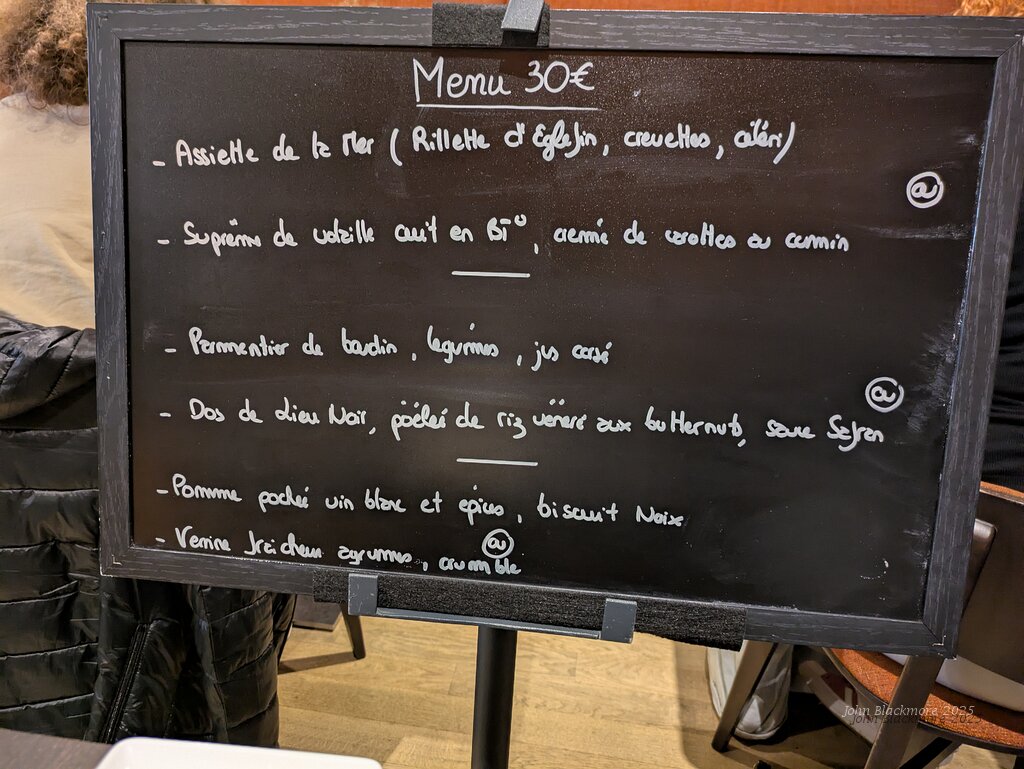 Menu 30€
- Assiette de la Mer ( Rillette d'Eglefin, crevettes, céleri)
@
- Suprême de volaille cuit en BT°, crème de carottes au cumin
- Parmentier de boudin, légumes, jus corsé
@
- Dos de Lieu Noir, poêlée de riz vénéré aux butternut, sauce Safran
- Pomme pochée vin blanc et épices, biscuit Noix
@
- Verrine fraîcheur agrumes, crumble
John Blackmore 2025